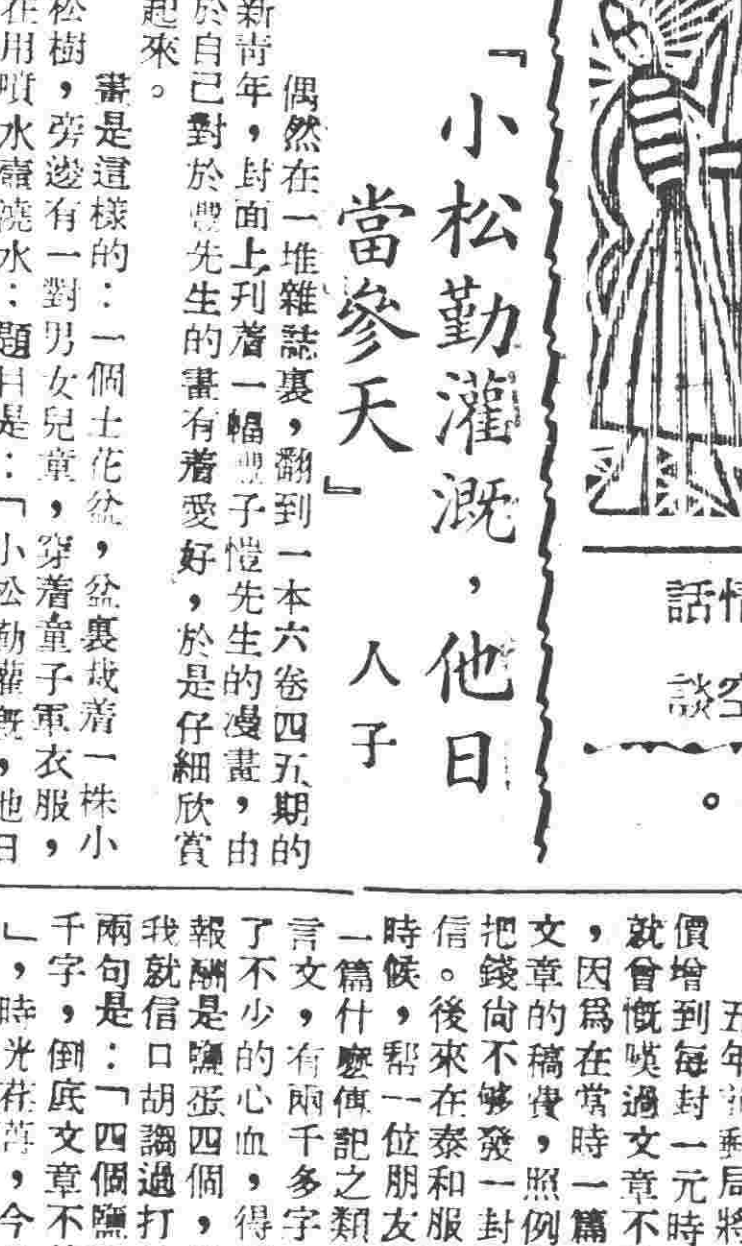 『小松勤灌溉,他日
當參天』
人子
偶然在一堆雜誌裏,翻到一本六卷四五期的
新青年,封面上刋着一幅豐子愷先生的漫畫,由
於自己對於豐先生的畫有着愛好,於是仔細欣賞
起來。
畫是這樣的:一個土花盆,盆裏栽着一株小
松樹,旁邊有一對男女兒童,穿着童子軍衣服,
在用噴水壺澆水:題目是:「小松勤灌溉,他日
情
話
空
談
。
五年前郵局將
價增到每封一元時
就曾慨嘆過文章不
,因爲在當時一篇
文章的稿費,照例
把錢尙不够發一封
信。後來在泰和服
時候,幫一位朋友
一篇什麼傳記之類
言文,有兩千多字
了不少的心血,得
報酬是鹽蛋四個,
我就信口胡謅過打
兩句是:「四個鹽
千字,倒底文章不
」,時光荏苒,今